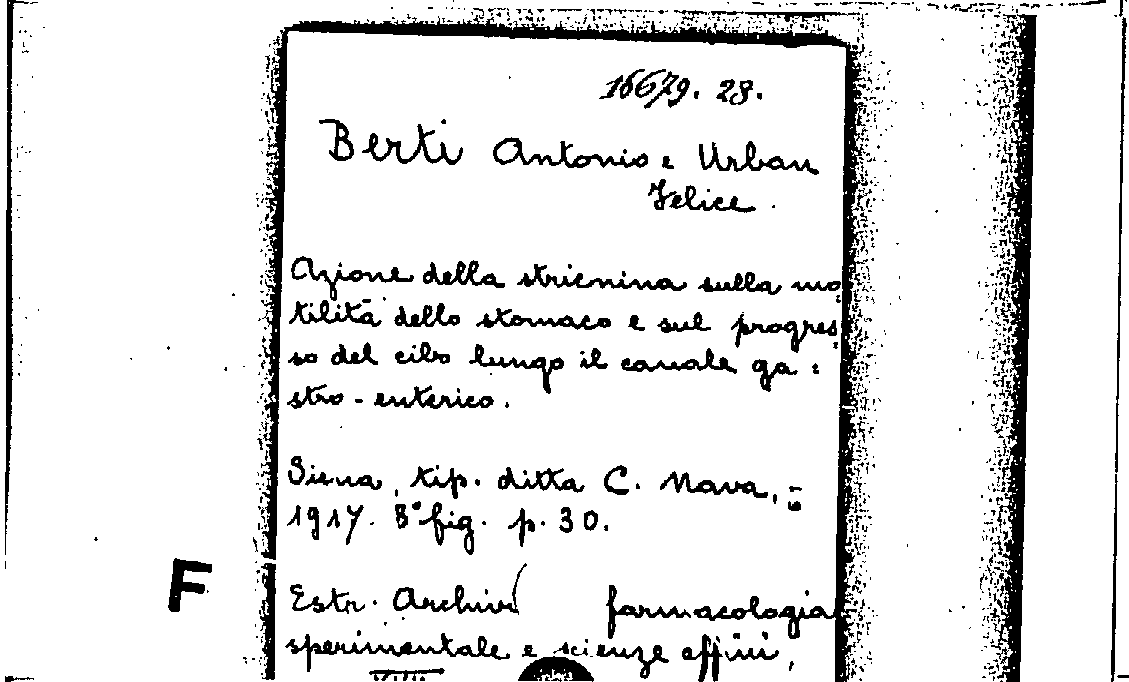 16679. 28.
Berti Antonio e Urban
Felice.
Azione della stricnina sulla mo
tilità dello stomaco e sul progres
so del cibo lungo il canale ga :
stro - enterico.
Siena, tip. ditta C. Nava,
1917. 8° fig. p. 30.
Estr. Archivi farmacologia
sperimentale e scienze affini,
XXIII
F